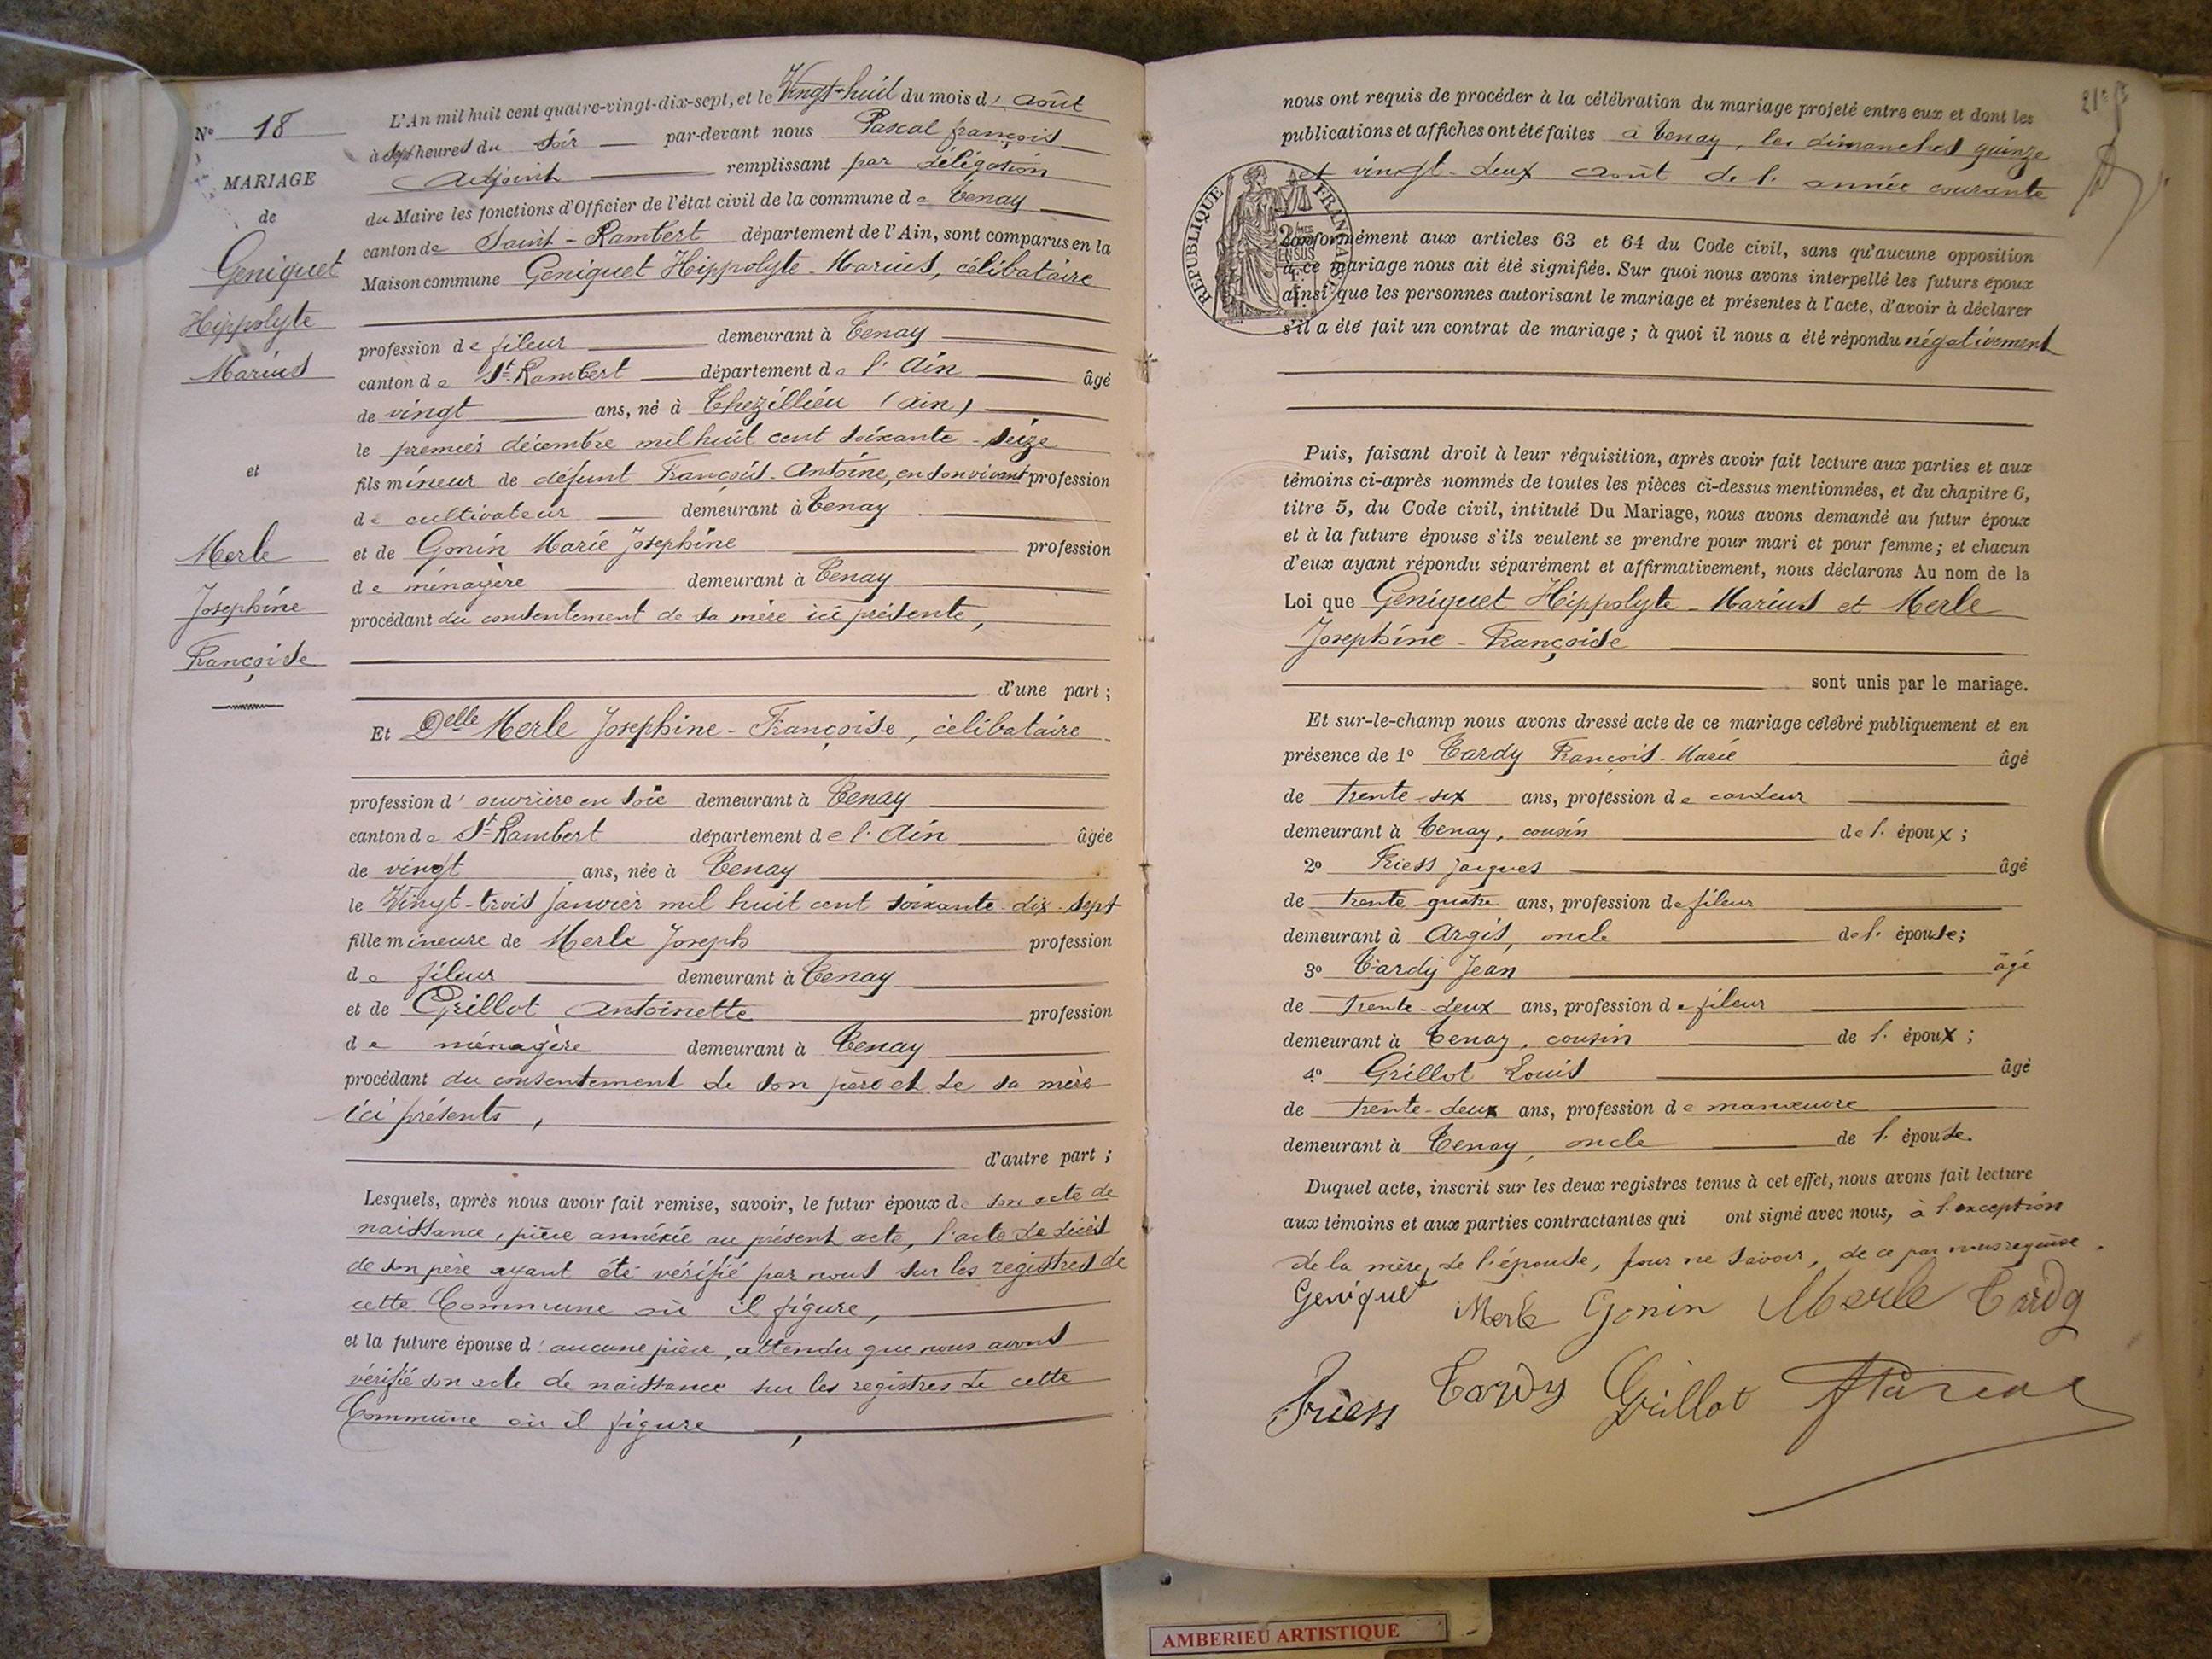 N° 18
MARIAGE
de
Geniquet
Hippolyte
Marius
et
Merle
Josephine
Françoise
L'An mil huit cent quatre-vingt-dix-sept, et le Vingt-huit du mois d' août
à sept heures du soir par-devant nous Pascal françois
Adjoint remplissant par délégation
du Maire les fonctions d'Officier de l'état civil de la commune de Tenay
canton de Saint-Rambert département de l'Ain, sont comparus en la
Maison commune Geniquet Hippolyte-Marius, célibataire
profession de fileur demeurant à Tenay
canton de St-Rambert département de l'Ain âgé
de vingt ans, né à Thezillieu (ain)
le premier décembre mil huit cent soixante-seize
fils mineur de défunt François-Antoine, en son vivant profession
de cultivateur demeurant à Tenay
et de Gonin Marie Josephine profession
de ménagère demeurant à Tenay
procédant du consentement de sa mère ici présente,
d'une part ;
Et Delle Merle Josephine-Françoise, célibataire
profession d' ouvrière en soie demeurant à Tenay
canton de St-Rambert département de l'Ain âgée
de vingt ans, née à Tenay
le Vingt-trois janvier mil huit cent soixante-dix-sept
fille mineure de Merle Joseph profession
de fileur demeurant à Tenay
et de Grillot Antoinette profession
de ménagère demeurant à Tenay
procédant du consentement de son père et de sa mère
ici présents,
d'autre part ;
Lesquels, après nous avoir fait remise, savoir, le futur époux de son acte de
naissance, pièce annexée au présent acte, l'acte de décès
de son père ayant été vérifié par nous sur les registres de
cette Commune où il figure,
et la future épouse d' aucune pièce, attendu que nous avons
vérifié son acte de naissance sur les registres de cette
Commune où il figure,
nous ont requis de procéder à la célébration du mariage projeté entre eux et dont les
publications et affiches ont été faites à Tenay, les dimanches quinze
et vingt-deux août de l'année courante
RÉPUBLIQUE FRANÇAISE
conformément aux articles 63 et 64 du Code civil, sans qu'aucune opposition
à ce mariage nous ait été signifiée. Sur quoi nous avons interpellé les futurs époux
ainsi que les personnes autorisant le mariage et présentes à l'acte, d'avoir à déclarer
s'il a été fait un contrat de mariage ; à quoi il nous a été répondu négativement
Puis, faisant droit à leur réquisition, après avoir fait lecture aux parties et aux
témoins ci-après nommés de toutes les pièces ci-dessus mentionnées, et du chapitre 6,
titre 5, du Code civil, intitulé Du Mariage, nous avons demandé au futur époux
et à la future épouse s'ils veulent se prendre pour mari et pour femme ; et chacun
d'eux ayant répondu séparément et affirmativement, nous déclarons Au nom de la
Loi que Geniquet Hippolyte-Marius et Merle
Josephine-Françoise
sont unis par le mariage.
Et sur-le-champ nous avons dressé acte de ce mariage célébré publiquement et en
présence de 1° Tardy François-Marie âgé
de trente-six ans, profession de cardeur
demeurant à Tenay, cousin de l'époux ;
2° Friess Jacques âgé
de trente-quatre ans, profession de fileur
demeurant à Argis, oncle de l'épouse ;
3° Tardy Jean âgé
de trente-deux ans, profession de fileur
demeurant à Tenay, cousin de l'époux ;
4° Grillot Louis âgé
de trente-deux ans, profession de manœuvre
demeurant à Tenay, oncle de l'épouse.
Duquel acte, inscrit sur les deux registres tenus à cet effet, nous avons fait lecture
aux témoins et aux parties contractantes qui ont signé avec nous, à l'exception
de la mère de l'épouse, pour ne savoir, de ce par nous requise.
Geniquet Merle Gonin Merle Tardy
Friess Tardy Grillot
AMBERIEU ARTISTIQUE